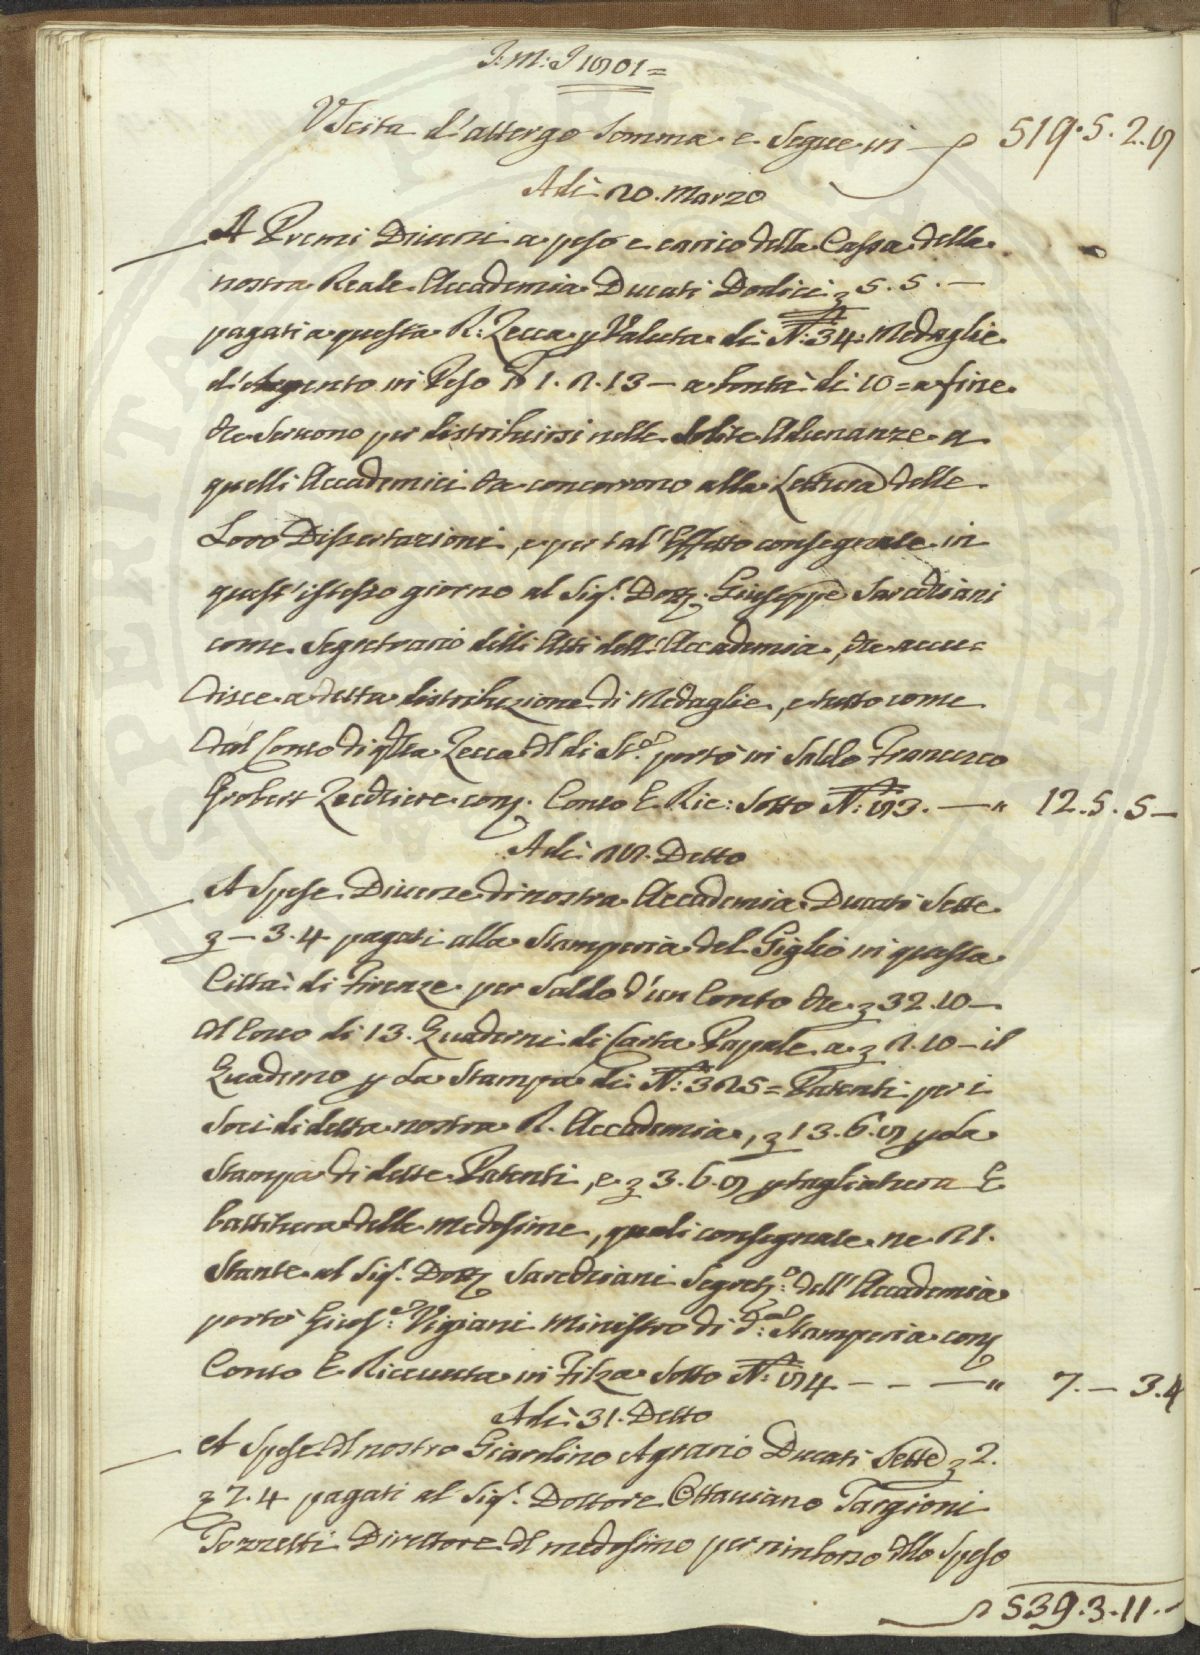 J: M: J 1801 =
Uscita d'attergo Somma e Segue in — 519. 5. 2. 8
Adì 20. Marzo
A Premi Diversi a peso e carico della Cassa della
nostra Reale Accademia Ducati Dodici 5. 5. —
pagati a questa R: Zecca p Valuta di N: 34: Medaglie
d'Argento in Peso 1. 2. 13 — a bontà di 10 = a fine
che servono per distribuirsi nelle Solite Adunanze a
quelli Accademici che concorrono alla Lettura delle
Loro Dissertazioni, e per tal' Effetto consegnate in
quest' istesso giorno al Sig.r Dott. Giuseppe Sarchiani
come Segretrario delli Atti dell' Accademia, che accu=
disce a detta distribuzione di Medaglie, e tutto come
dal Conto di q.sta Zecca portò in Saldo Francesco
Grobert Zecchiere com. Conto E Ric: Sotto N: 83. — " 12. 5. 5 —
Adì 28. Detto
A Spese Diverse di nostra Accademia Ducati Sette
— 3. 4 pagati alla Stamperia del Giglio in questa
Città di Firenze per Saldo d'un Conto che 32. 10 —
Costo di 13. Quaderni di Carta Papale a 2. 10 — il
Quaderno p La Stampa di N: 325 = Patenti per i
Soci di detta nostra R. Accademia, 13. 6. 8 p La
Stampa di dette Patenti, e 3. 6. 8 p tagliatura E
battitura delle medesime, quali consegnate ne 21.
Stante al Sig.r Dott. Sarchiani Segret.o dell' Accademia
portò Gius.e Vigiani Ministro di d.a Stamperia com.
Conto E Ricevuta in Filza Sotto N: 84 — — — " 7. — 3. 4
Adì 31. Detto
A Spese del nostro Giardino Agrario Ducati Sette 2.
7. 4 pagati al Sig.r Dottore Ottaviano Targioni
Tozzetti Direttore del medesimo per rimborso dello Speso
539. 3. 11. —